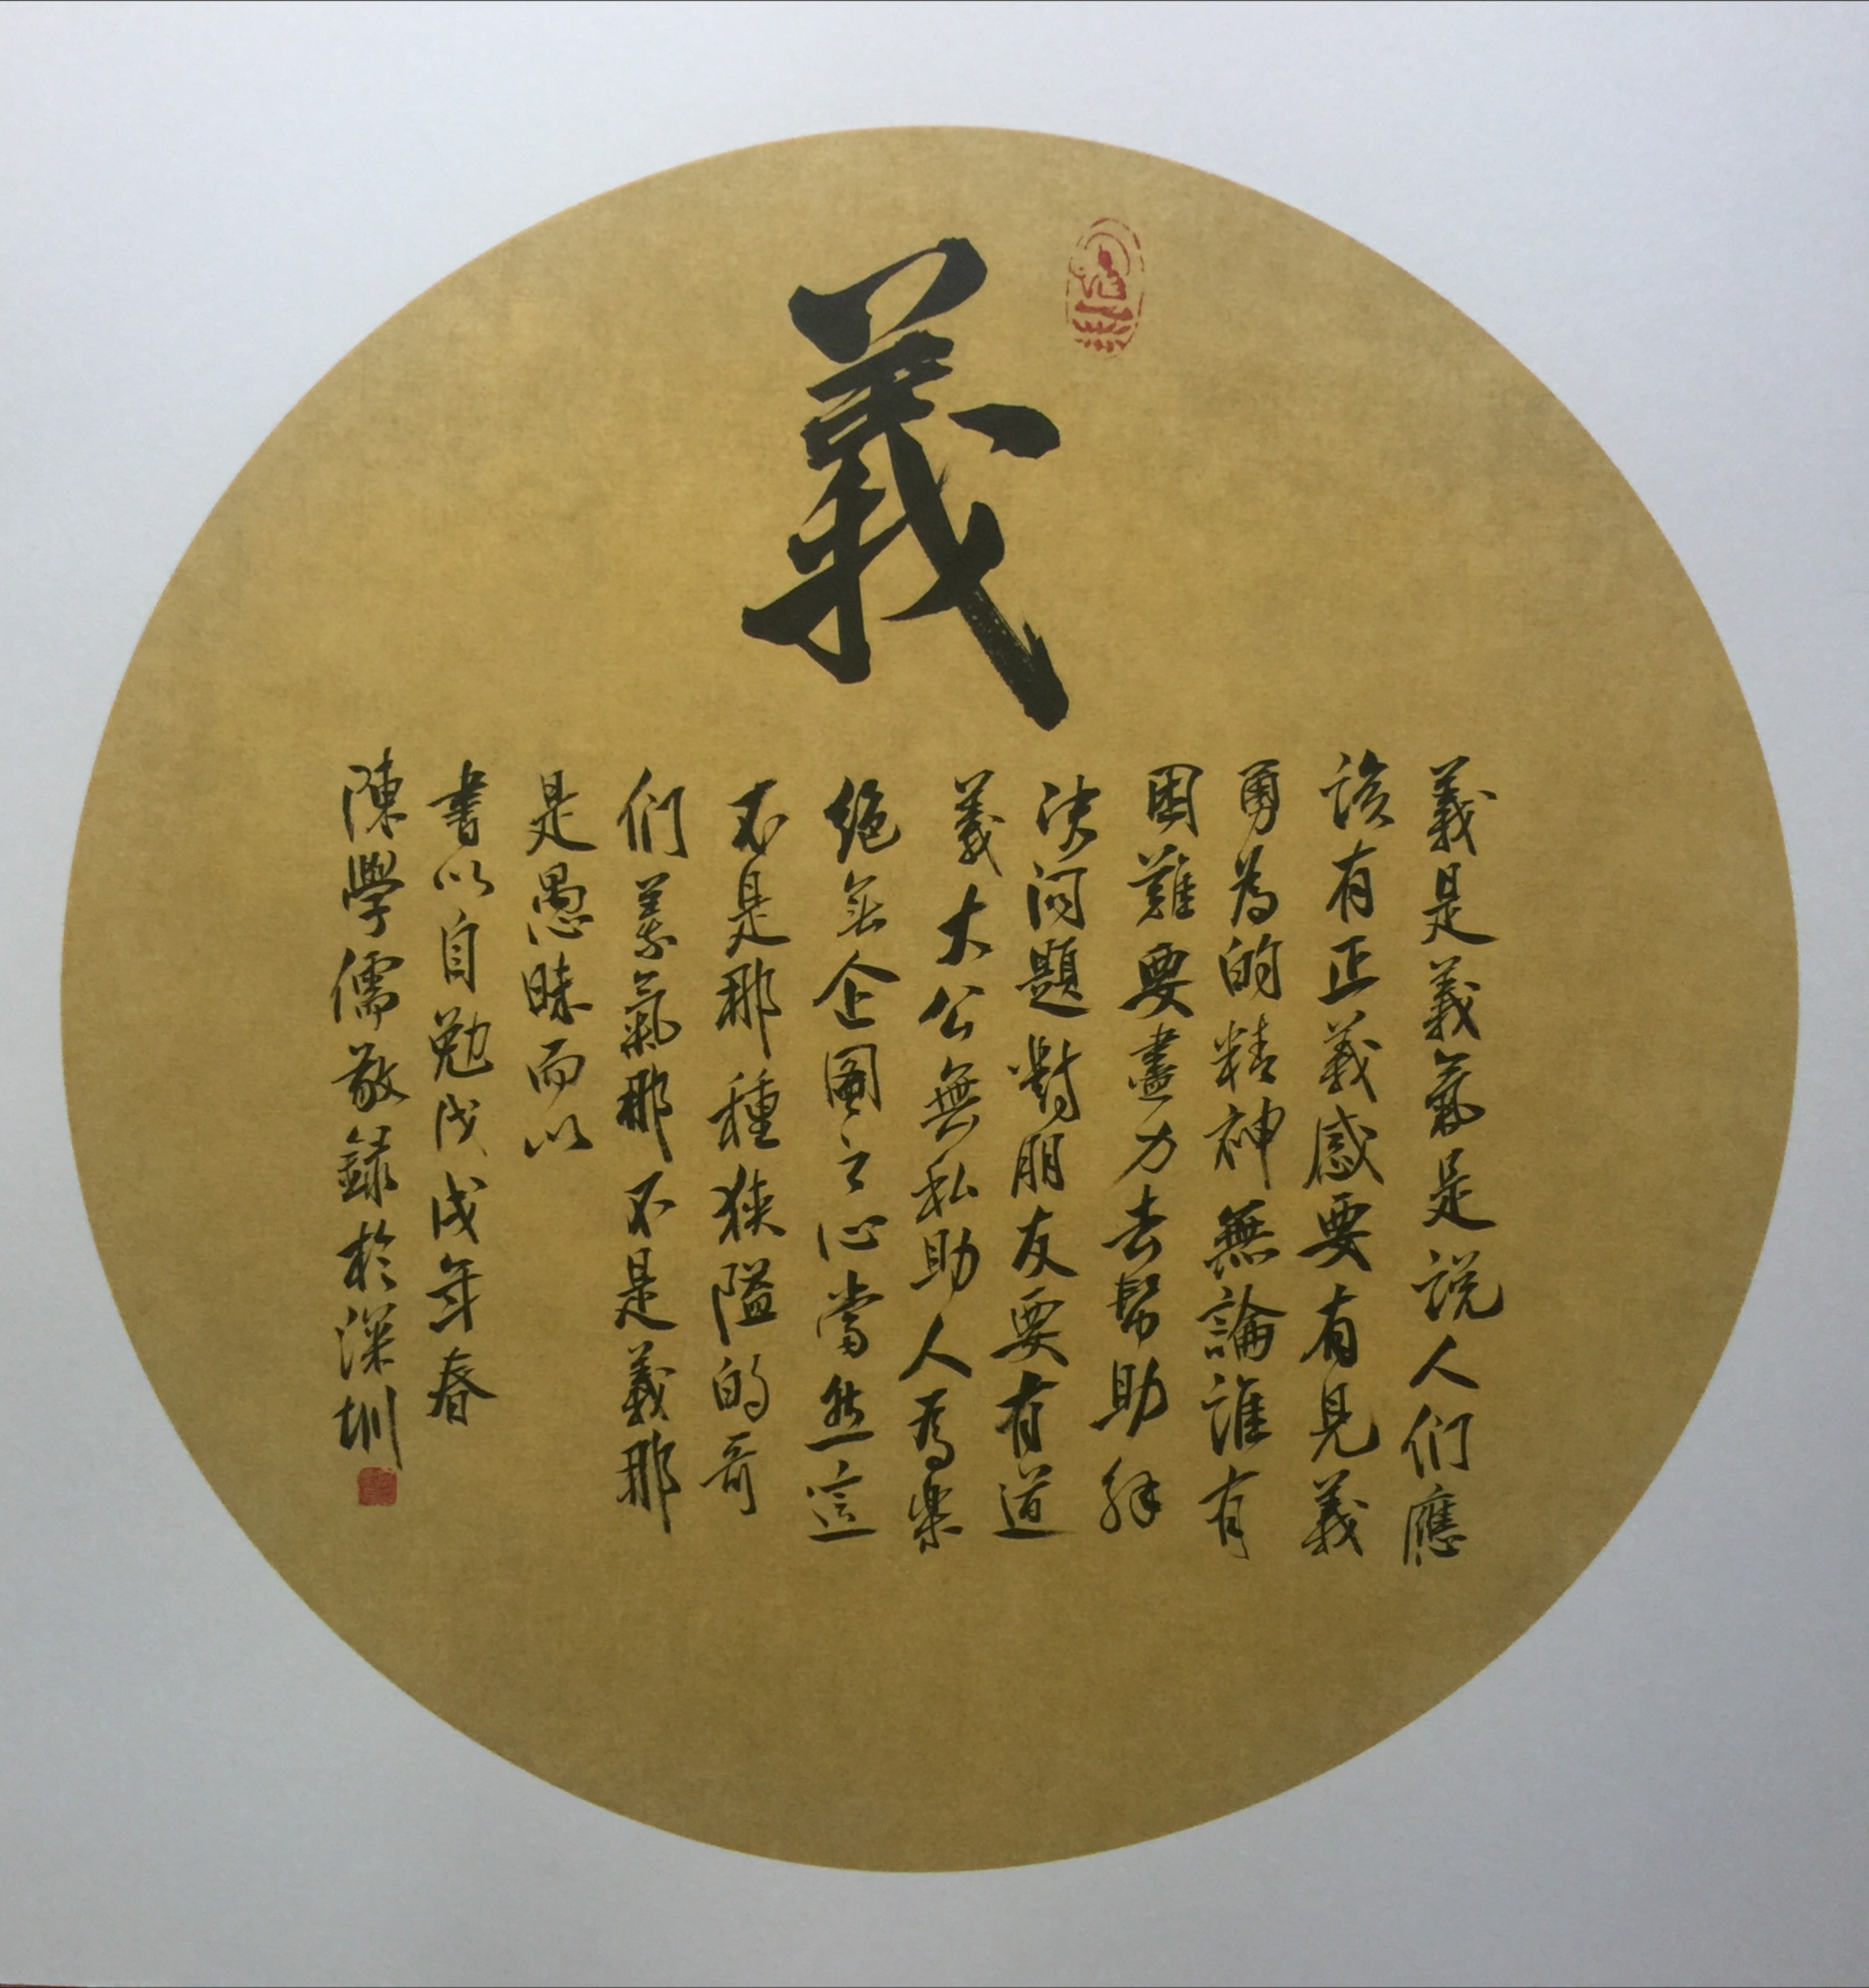 義
義是義氣是说人们應
該有正義感要有見義
勇為的精神無論誰有
困難要盡力去幫助解
决问題對朋友要有道
義大公無私助人為樂
绝无企圖之心當然這
不是那種狭隘的哥
们義氣那不是義那
是愚昧而以
書以自勉戊戌年春
陳學儒敬録於深圳